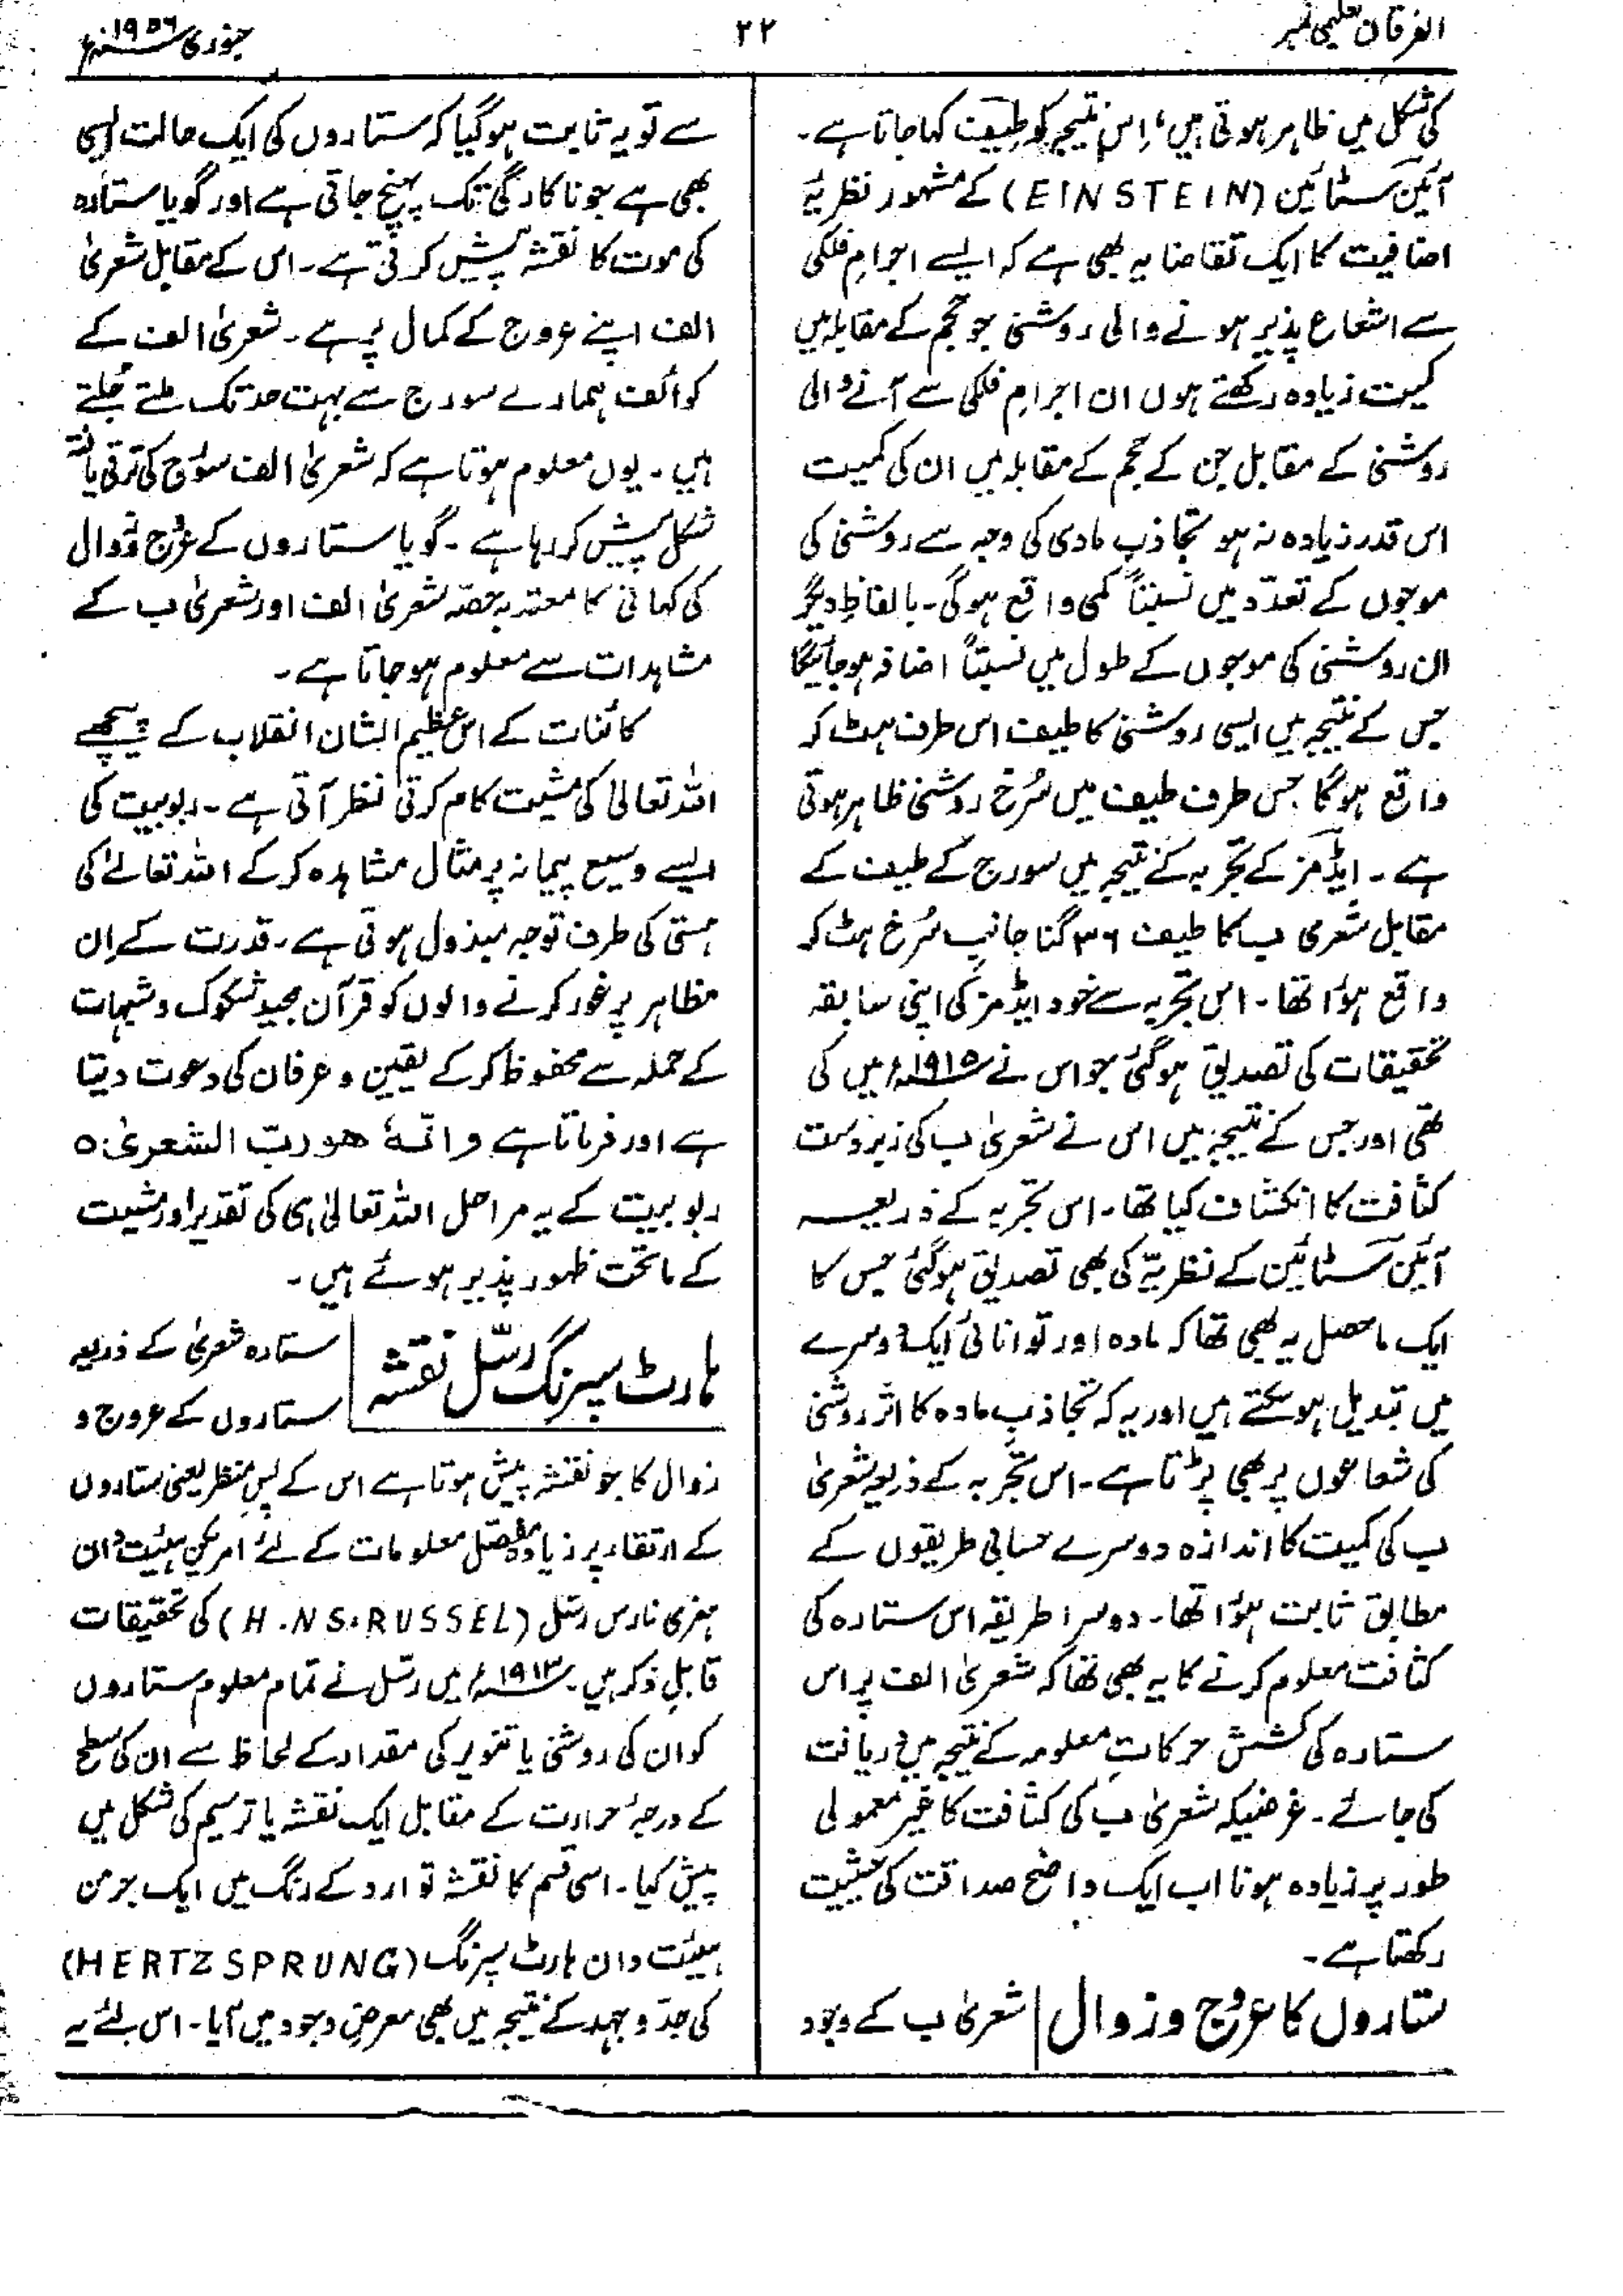 الفرقان تعلیمی نمبر
۲۲
جنوری ۱۹۵۶ء
کی شکل میں ظاہر ہوتی ہیں، اِس نتیجہ کو طیف کہا جاتا ہے۔
آئین سٹائین (EINSTEIN) کے مشہور نظریۂ
اضافیت کا ایک تقاضا یہ بھی ہے کہ ایسے اجرامِ فلکی
سے اشعاع پذیر ہونے والی روشنی جو حجم کے مقابلہ میں
کمیت زیادہ رکھتے ہوں ان اجرامِ فلکی سے آنے والی
روشنی کے مقابل جن کے حجم کے مقابلہ میں ان کی کمیت
اس قدر زیادہ نہ ہو تجاذبِ مادی کی وجہ سے روشنی کی
موجوں کے تعدّد میں نسبتاً کمی واقع ہوگی۔ بالفاظِ دیگر
ان روشنی کی موجوں کے طول میں نسبتاً اضافہ ہوجائیگا
جس کے نتیجہ میں ایسی روشنی کا طیف اس طرف ہٹ کر
واقع ہوگا جس طرف طیف میں سُرخ روشنی ظاہر ہوتی
ہے۔ ایڈمز کے تجربہ کے نتیجہ میں سورج کے طیف کے
مقابل شعری ب کا طیف ۳۶ گنا جانبِ سُرخ ہٹ کر
واقع ہؤا تھا۔ اس تجربہ سے خود ایڈمز کی اپنی سابقہ
تحقیقات کی تصدیق ہوگئی جو اس نے ۱۹۱۵ء میں کی
تھی اور جس کے نتیجہ میں اس نے شعریٰ ب کی زبردست
کثافت کا انکشاف کیا تھا۔ اس تجربہ کے ذریعہ
آئین سٹائین کے نظریّہ کی بھی تصدیق ہوگئی جس کا
ایک ماحصل یہ بھی تھا کہ مادہ اور توانائی ایک دوسرے
میں تبدیل ہوسکتے ہیں اور یہ کہ تجاذبِ مادہ کا اثر روشنی
کی شعاعوں پر بھی پڑتا ہے۔ اس تجربہ کے ذریعہ شعریٰ
ب کی کمیت کا اندازہ دوسرے حسابی طریقوں کے
مطابق ثابت ہؤا تھا۔ دوسرا طریقہ اس ستارہ کی
کثافت معلوم کرنے کا یہ بھی تھا کہ شعریٰ الف پر اس
ستارہ کی کشش حرکاتِ معلومہ کے نتیجہ میں دریافت
کی جائے۔ غرضیکہ شعریٰ ب کی کثافت کا غیر معمولی
طور پر زیادہ ہونا اب ایک واضح صداقت کی حیثیت
رکھتا ہے۔
ستاروں کا عروج و زوال شعریٰ ب کے وجود
سے تو یہ ثابت ہوگیا کہ ستاروں کی ایک حالت ایسی
بھی ہے جو ناکارگی تک پہنچ جاتی ہے اور گویا ستارہ
کی موت کا نقشہ پیش کرتی ہے۔ اس کے مقابل شعریٰ
الف اپنے عروج کے کمال پر ہے۔ شعریٰ الف کے
کوائف ہمارے سورج سے بہت حد تک ملتے جُلتے
ہیں۔ یوں معلوم ہوتا ہے کہ شعریٰ الف سورج کی ترقی یافتہ
شکل پیش کر رہا ہے۔ گویا ستاروں کے عروج و زوال
کی کہانی کا معتدبہ حصّہ شعریٰ الف اور شعریٰ ب کے
مشاہدات سے معلوم ہوجاتا ہے۔
کائنات کے اس عظیم الشان انقلاب کے پیچھے
اللہ تعالیٰ کی مشیت کام کرتی نظر آتی ہے۔ ربوبیت کی
ایسے وسیع پیمانہ پر مثال مشاہدہ کر کے اللہ تعالےٰ کی
ہستی کی طرف توجہ مبذول ہوتی ہے۔ قدرت کے اِن
مظاہر پر غور کرنے والوں کو قرآن مجید شکوک و شبہات
کے حملہ سے محفوظ کر کے یقین و عرفان کی دعوت دیتا
ہے اور فرماتا ہے وانّهٗ هو ربّ الشعریٰ ہ
ربوبیت کے یہ مراحل اللہ تعالیٰ ہی کی تقدیر اور مشیت
کے ماتحت ظہور پذیر ہوئے ہیں۔
ہارٹ سپرنگ رسّل نقشہ ستارہ شعریٰ کے ذریعہ
ستاروں کے عروج و
زوال کا جو نقشہ پیش ہوتا ہے اس کے پسِ منظر یعنی ستاروں
کے ارتقاء پر زیادہ مفصّل معلومات کے لئے امریکن ہیئت دان
ہنری نارس رسّل (H.NS.RUSSEL) کی تحقیقات
قابلِ ذکر ہیں۔ ۱۹۱۳ء میں رسّل نے تمام معلوم ستاروں
کو ان کی روشنی یا تنویر کی مقدار کے لحاظ سے ان کی سطح
کے درجۂ حرارت کے مقابل ایک نقشہ یا ترسیم کی شکل میں
پیش کیا۔ اسی قسم کا نقشہ توارد کے رنگ میں ایک جرمن
ہیئت دان ہارٹ سپرنگ (HERTZSPRUNG)
کی جدّ و جہد کے نتیجہ میں بھی معرضِ وجود میں آیا۔ اس لئے یہ